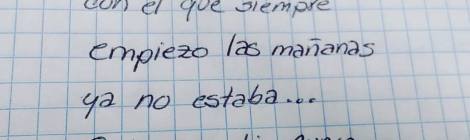 con el que siempre
empiezo las mañanas
ya no estaba...